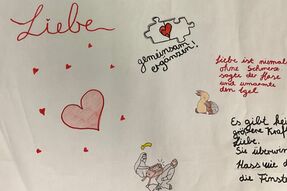 Liebe
gemeinsam
ergänzen!
Liebe ist niemals
ohne Schmerz
sagte der Hase
und umarmte
den Igel
Es gibt kei
größere Kraft
Liebe.
Sie überwin
Hass wie d
die Finster